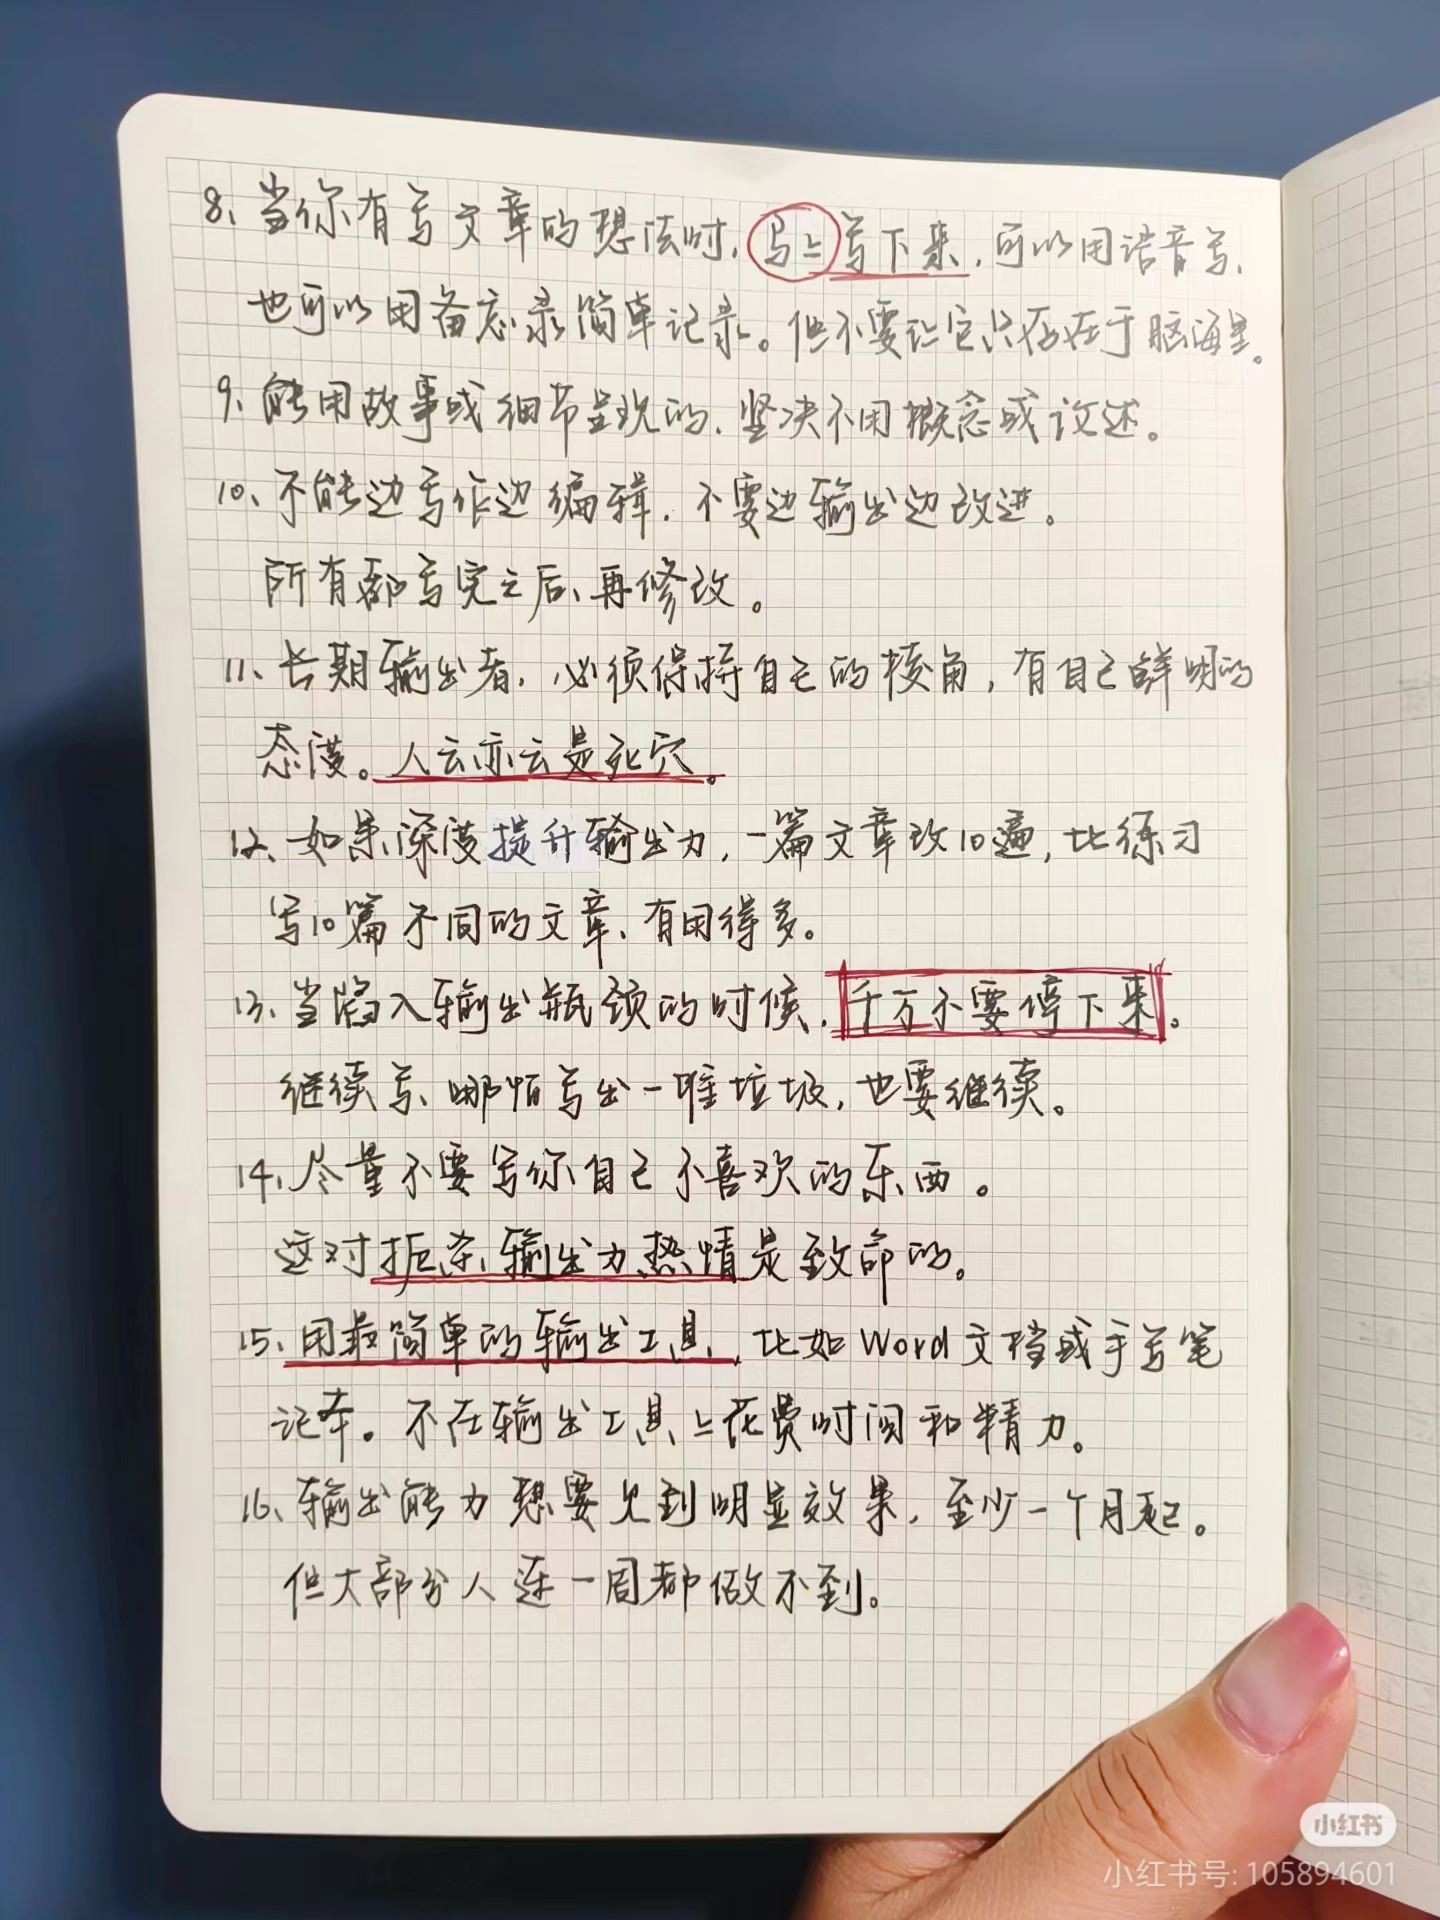 8、当你有写文章的想法时，马上写下来，可以用语音写，
也可以用备忘录简单记录。但不要让它只存在于脑海里。
9、能用故事或细节呈现的，坚决不用概念或议述。
10、不能边写作边编辑，不要边输出边改进。
所有都写完之后、再修改。
11、长期输出者，必须保持自己的棱角，有自己鲜明的
态度。人云亦云是死穴。
12、如果深度提升输出力，一篇文章改10遍，比练习
写10篇不同的文章、有用得多。
13、当陷入输出瓶颈的时候，千万不要停下来。
继续写、哪怕写出一堆垃圾，也要继续。
14、尽量不要写你自己不喜欢的东西。
这对扼杀输出力热情是致命的。
15、用最简单的输出工具，比如Word文档或手写笔
记本。不在输出工具上花费时间和精力。
16、输出能力想要见到明显效果，至少一个月起。
但大部分人连一周都做不到。
小红书
小红书号: 105894601